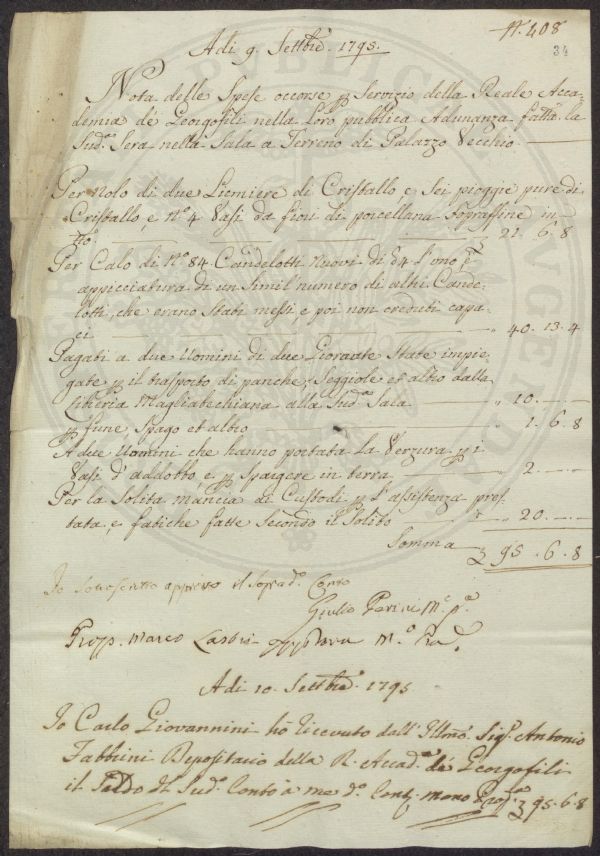 N. 408
34
Adi 9. Settbre. 1795.
Nota delle Spese occorse p Servizio della Reale Acca-
demia dé Georgofili nella Loro pubblica Adunanza fatta la
Sud.a Sera nella Sala a Terreno di Palazzo Vecchio.
Per Nolo di due Lumiere di Cristallo, e Sei pioggie pure di
Cristallo, e N.o 4 Vasi da fiori di porcellana Sopraffine in
21. 6. 8
Per Calo di N.o 84 Candelotti Nuovi di 4 l'uno, e
appicciatura di un Simil numero di altri Cande-
lotti, che erano Stati messi, e poi non creduti capa-
ci " 40. 13. 4
Pagati a due Uomini di due Giornate State impie-
gate p il trasporto di panche, Seggiole et altro dalla
Libreria Magliabechiana alla Sud.a Sala " 10. — . —
p fune Spago et altro " 1. 6. 8
A due Uomini che hanno portata La Verzura p i
Vasi d'addobbo, e p Spargere in terra " 2. — . —
Per la Solita mancia ai Custodi p l'assistenza pres-
tata, e fatiche fatte Secondo il Solito " 20. — . —
Somma 95. 6. 8
Io Sottoscritto approvo il Soprad.o Conto
Giulio Perini M.o p.a
Prop. Marco Lastri approva M.o
Adi 10. Settbre. 1795
Io Carlo Giovannini hò ricevuto dell' Illmo. Sigr. Antonio
Fabbrini Depositario della R. Accad.a dé Georgofili
il Saldo del Sud.o Conto à me d.o Cont. mano Prop.a 95. 6. 8